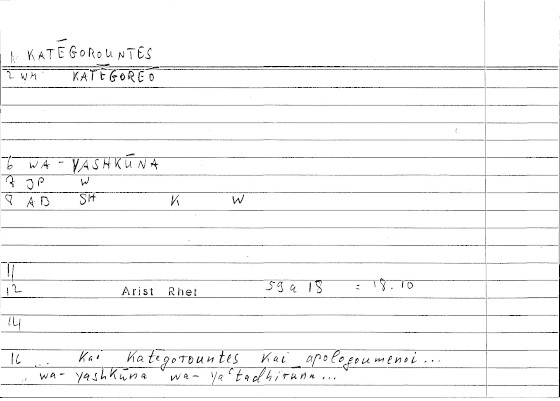 1. KATĒGOROUNTES
2 WH KATĒGOREŌ
6 WA - YASHKŪNA
7 JP W
8 AD SH K W
11
12 Arist Rhet 59 a 18 = 18.10
14
16 ... Kai Katēgorountes Kai apologoumenoi ...
... wa- yashkūna wa- yaʿtadhirūna ...